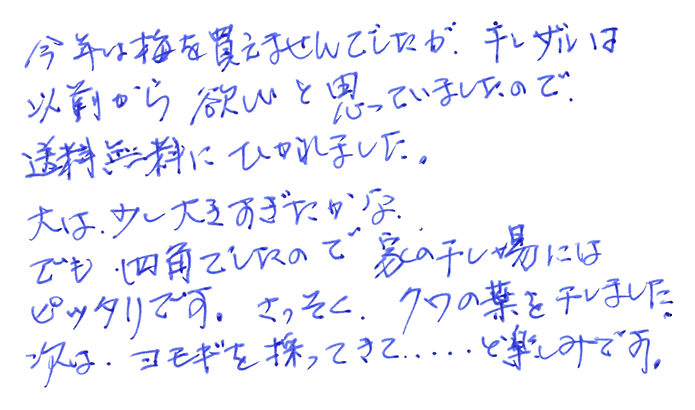 今年は梅を買えませんでしたが、干しザルは
以前から欲しいと思っていましたので、
送料無料にひかれました。
大は、少し大きすぎたかな、
でも、四角でしたので家の干し場には
ピッタリです。さっそく、クワの葉を干しました
次は、ヨモギを採ってきて.....と楽しみです。